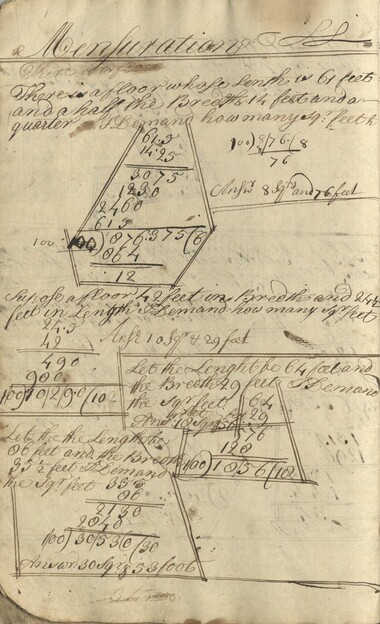 Mensuration
There is a floor whose Lenth is 61 feet
and a half the Breadth 14 feet and a
quarter I Demand how many Sqr. feet
61.5
14.25
3075
1230
2460
615
100) 876.375 (8
864
12
100) 8/76 (8
76
Ansr. 8 Sqrs and 76 feet
Supose a floor 42 feet in Bredth and 24½
feet in Length I Demand how many Sqr. feet
24.5
42
490
980
100) 10/29.0 (10
Ansr. 10 Sqr. & 29 feet
Let the Lenght be 64 feet and
the Breath 29 feet I Demand
the Sqr. feet
64
29
576
128
100) 18/56 (18
Let the the Length be
86 feet and the Breath
35½ feet I Demand
the Sqr. feet
35.5
86
2130
2840
100) 30/53.0 (30
Answr. 30 Sqr. & 53 foot